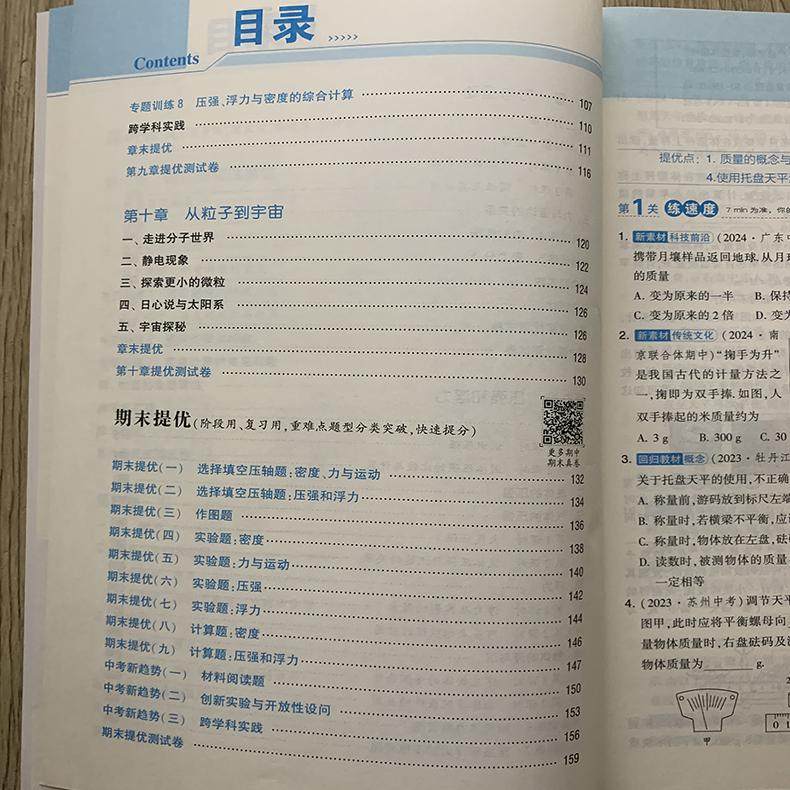 目录 >>>>>
Contents
专题训练8 压强、浮力与密度的综合计算 107
跨学科实践 110
章末提优 111
第九章提优测试卷 116
第十章 从粒子到宇宙
一、走进分子世界 120
二、静电现象 122
三、探索更小的微粒 124
四、日心说与太阳系 126
五、宇宙探秘 126
章末提优 128
第十章提优测试卷 130
期末提优(阶段用、复习用,重难点题型分类突破,快速提分)
更多期中
期末真卷
期末提优(一) 选择填空压轴题:密度、力与运动 132
期末提优(二) 选择填空压轴题:压强和浮力 134
期末提优(三) 作图题 136
期末提优(四) 实验题:密度 138
期末提优(五) 实验题:力与运动 140
期末提优(六) 实验题:压强 142
期末提优(七) 实验题:浮力 144
期末提优(八) 计算题:密度 146
期末提优(九) 计算题:压强和浮力 147
中考新趋势(一) 材料阅读题 150
中考新趋势(二) 创新实验与开放性设问 153
中考新趋势(三) 跨学科实践 156
期末提优测试卷 159
提优点:1. 质量的概念与
4.使用托盘天平
第1关 练速度 7 min为准,你的
1. 新素材 科技前沿 (2024·广东
携带月壤样品返回地球.从月
的质量
A. 变为原来的一半 B. 保持
C. 变为原来的2倍 D. 变为
2. 新素材 传统文化 (2024·南
京联合体期中)“掬手为升”
是我国古代的计量方法之
一,掬即为双手捧.如图,人
双手捧起的米质量约为
A. 3 g B. 300 g C. 30
3. 回归教材 概念 (2023·牡丹江
关于托盘天平的使用,不正确
A. 称量前,游码放到标尺左端
B. 称量时,若横梁不平衡,应
C. 称量时,物体放在左盘,砝
D. 读数时,被测物体的质量
一定相等
4. (2023·苏州中考)调节天平
图甲,此时应将平衡螺母向
量物体质量时,右盘砝码及
物体质量为 g.
甲
0 1